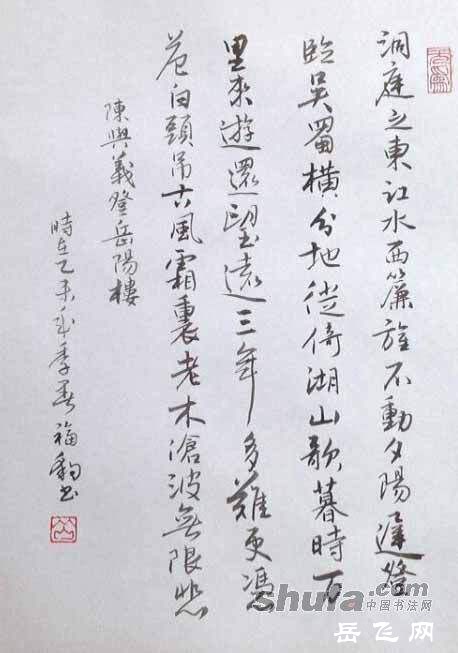 洞庭之東江水西簾旌不動夕陽遲登
臨吳蜀橫分地徙倚湖山欲暮時万
里來遊還望遠三年多難更憑
危白頭吊古風霜裏老木滄波無限悲
陳與義登岳陽樓
時在乙未年季春福書
shufa.com
中国书法网
岳飞网